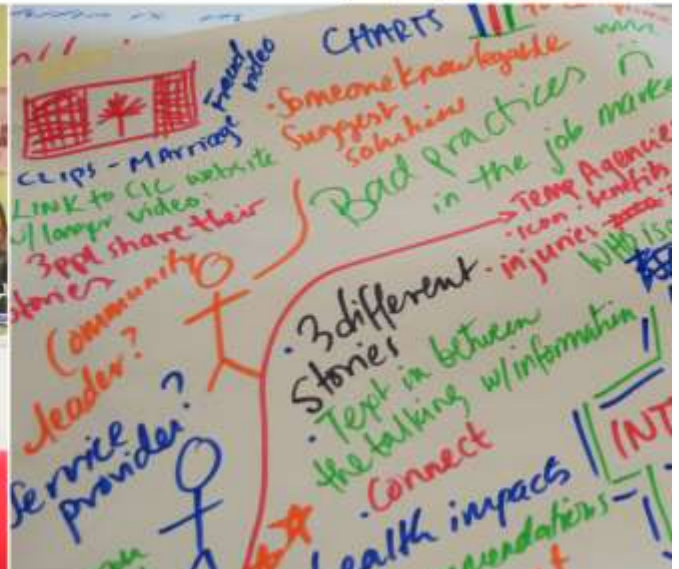 CHARTS
Fraud
video
CLIPS - MArriage
LINK to CIC website
w/ longer video.
3ppl share their
stories
• Someone knowlegable
Suggest
solutions
Bad practices
in the job
Temp Agencies
• icon • benefits
injuries
WHO is
Community
leader?
Service
provider?
• 3 different
Stories
• Text in between
the talking w/ information
• Connect
health impacts